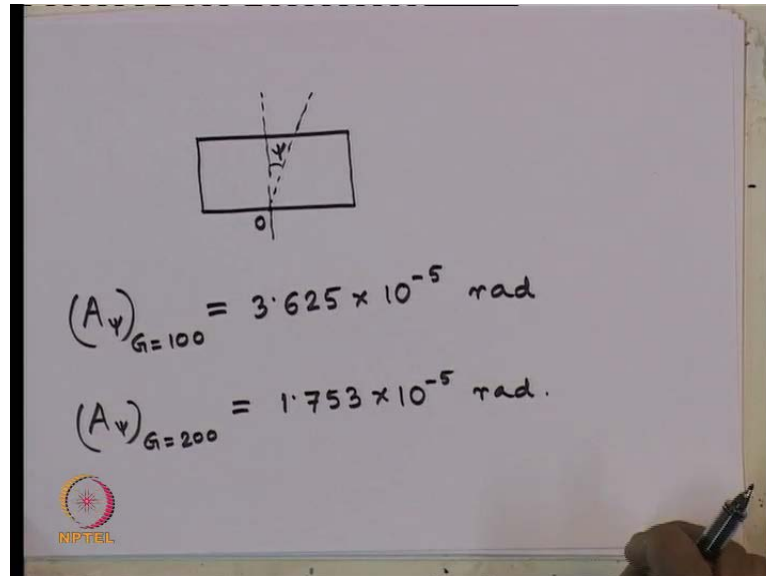 ψ
O
(Aψ)G=100 = 3.625 × 10⁻⁵ rad
(Aψ)G=200 = 1.753 × 10⁻⁵ rad.
NPTEL